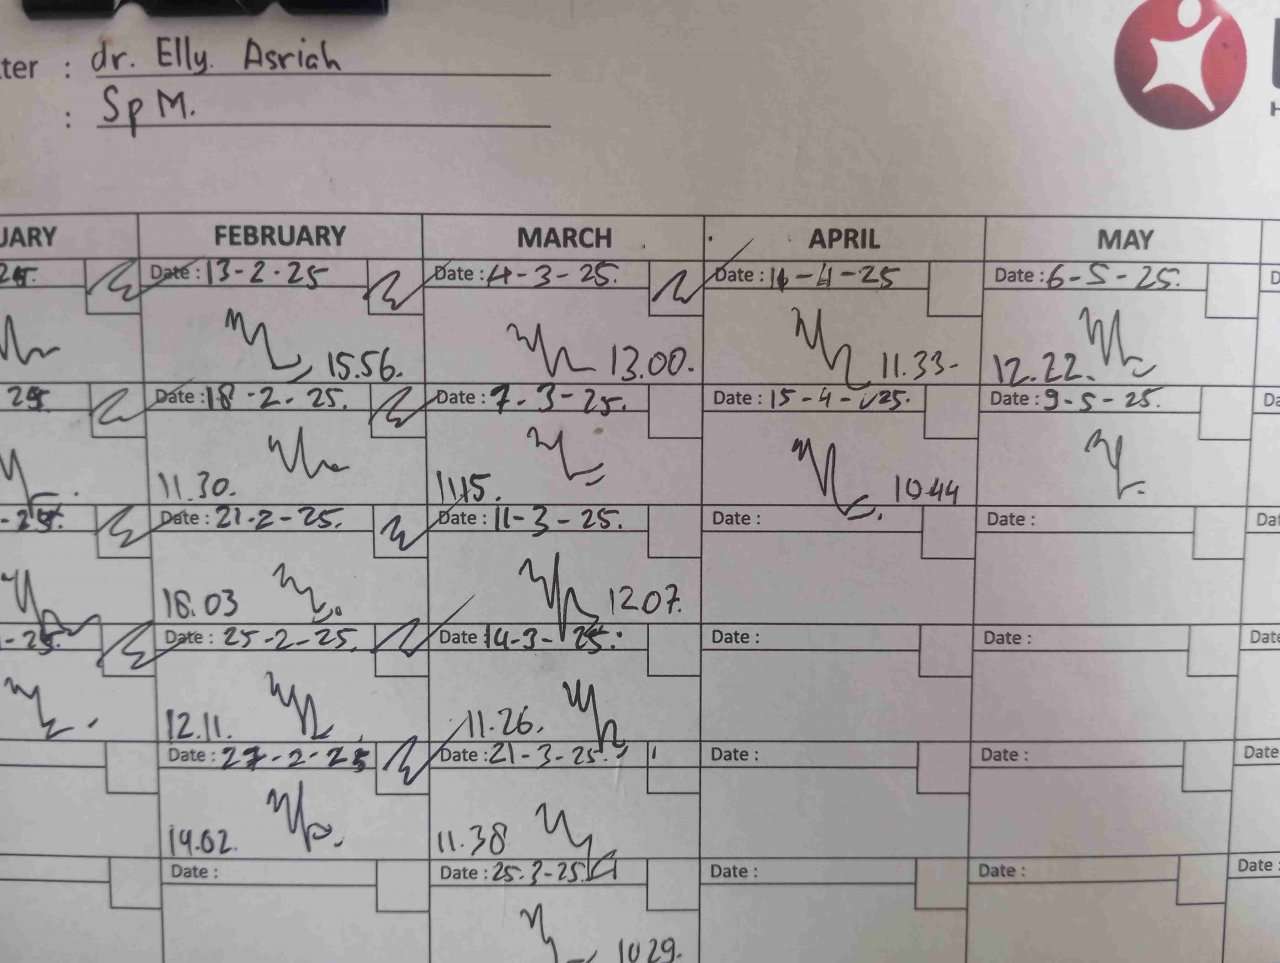 ter : dr. Elly. Asriah
: Sp M.
UARY FEBRUARY MARCH APRIL MAY
25. Date : 13-2-25 Date : 4-3-25. Date : -4-25 Date : 6-5-25.
15.56. 13.00. 11.33- 12.22.
25. Date : 18-2-25. Date : 7-3-25. Date : 15-4-25. Date : 9-5-25.
11.30. 11.15. 10.44
-25. Date : 21-2-25. Date : 11-3-25. Date : Date : Dat
16.03 12.07.
-25. Date : 25-2-25. Date 14-3-25. Date : Date : Date
12.11. 11.26.
Date : 27-2-25 Date : 21-3-25. Date : Date : Date
14.02. 11.38
Date : Date : 25-3-25. Date : Date : Date :
10.29.